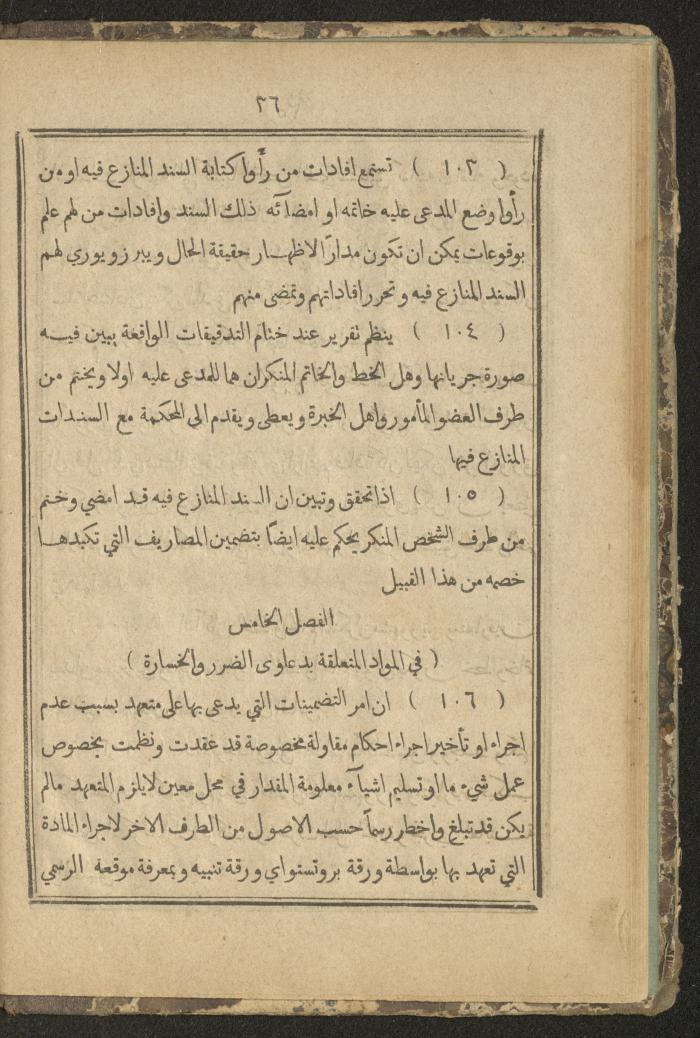 ٣٦
( ١٠٣ ) تستمع افادات من رأوا كتابة السند المنازع فيه او من
رأوا وضع المدعى عليه خاتمه او امضآئه ذلك السند وافادات من لهم علم
بوقوعات يمكن ان تكون مدارًا لاظهار حقيقة الحال ويبرز ويورى لهم
السند المنازع فيه وتحرر افاداتهم وتمضى منهم
( ١٠٤ ) ينظم تقرير عند ختام التدقيقات الواقعة يبين فيه
صورة جريانها وهل الخط والخاتم المنكران هما للمدعى عليه اولا ويختم من
طرف العضو المأمور واهل الخبرة ويعطى ويقدم الى المحكمة مع السندات
المنازع فيها
( ١٠٥ ) اذا تحقق وتبين ان السند المنازع فيه قد امضي وختم
من طرف الشخص المنكر يحكم عليه ايضًا بتضمين المصاريف التي تكبدها
خصمه من هذا القبيل
الفصل الخامس
( في المواد المتعلقة بدعاوى الضرر والخسارة )
( ١٠٦ ) ان امر التضمينات التي يدعى بها على متعهد بسبب عدم
اجراء او تأخير اجراء احكام مقاولة مخصوصة قد عقدت ونظمت بخصوص
عمل شيء ما او تسليم اشيآء معلومة المقدار في محل معين لا يلزم المتعهد مالم
يكن قد تبلغ واخطر رسماً حسب الاصول من الطرف الاخر لاجراء المادة
التي تعهد بها بواسطة ورقة بروتستو اي ورقة تنبيه وبمعرفة موقعه الرسمي